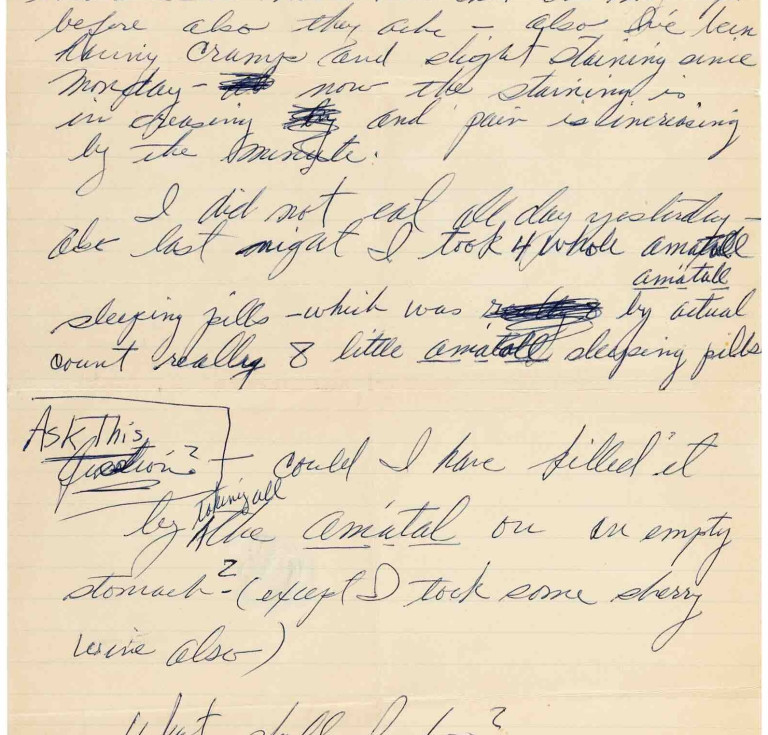 before also they ache - also I've been
having cramps and slight staining since
Monday - now the staining is
increasing and pain is increasing
by the minute.
I did not eat all day yesterday -
also last night I took 4 whole amatall
amatall
sleeping pills - which was by actual
count really 8 little amatall sleeping pills
Ask This
Question? - could I have killed it
by taking all the amatal on an empty
stomach? - (except I took some sherry
wine also)
What shall I do?